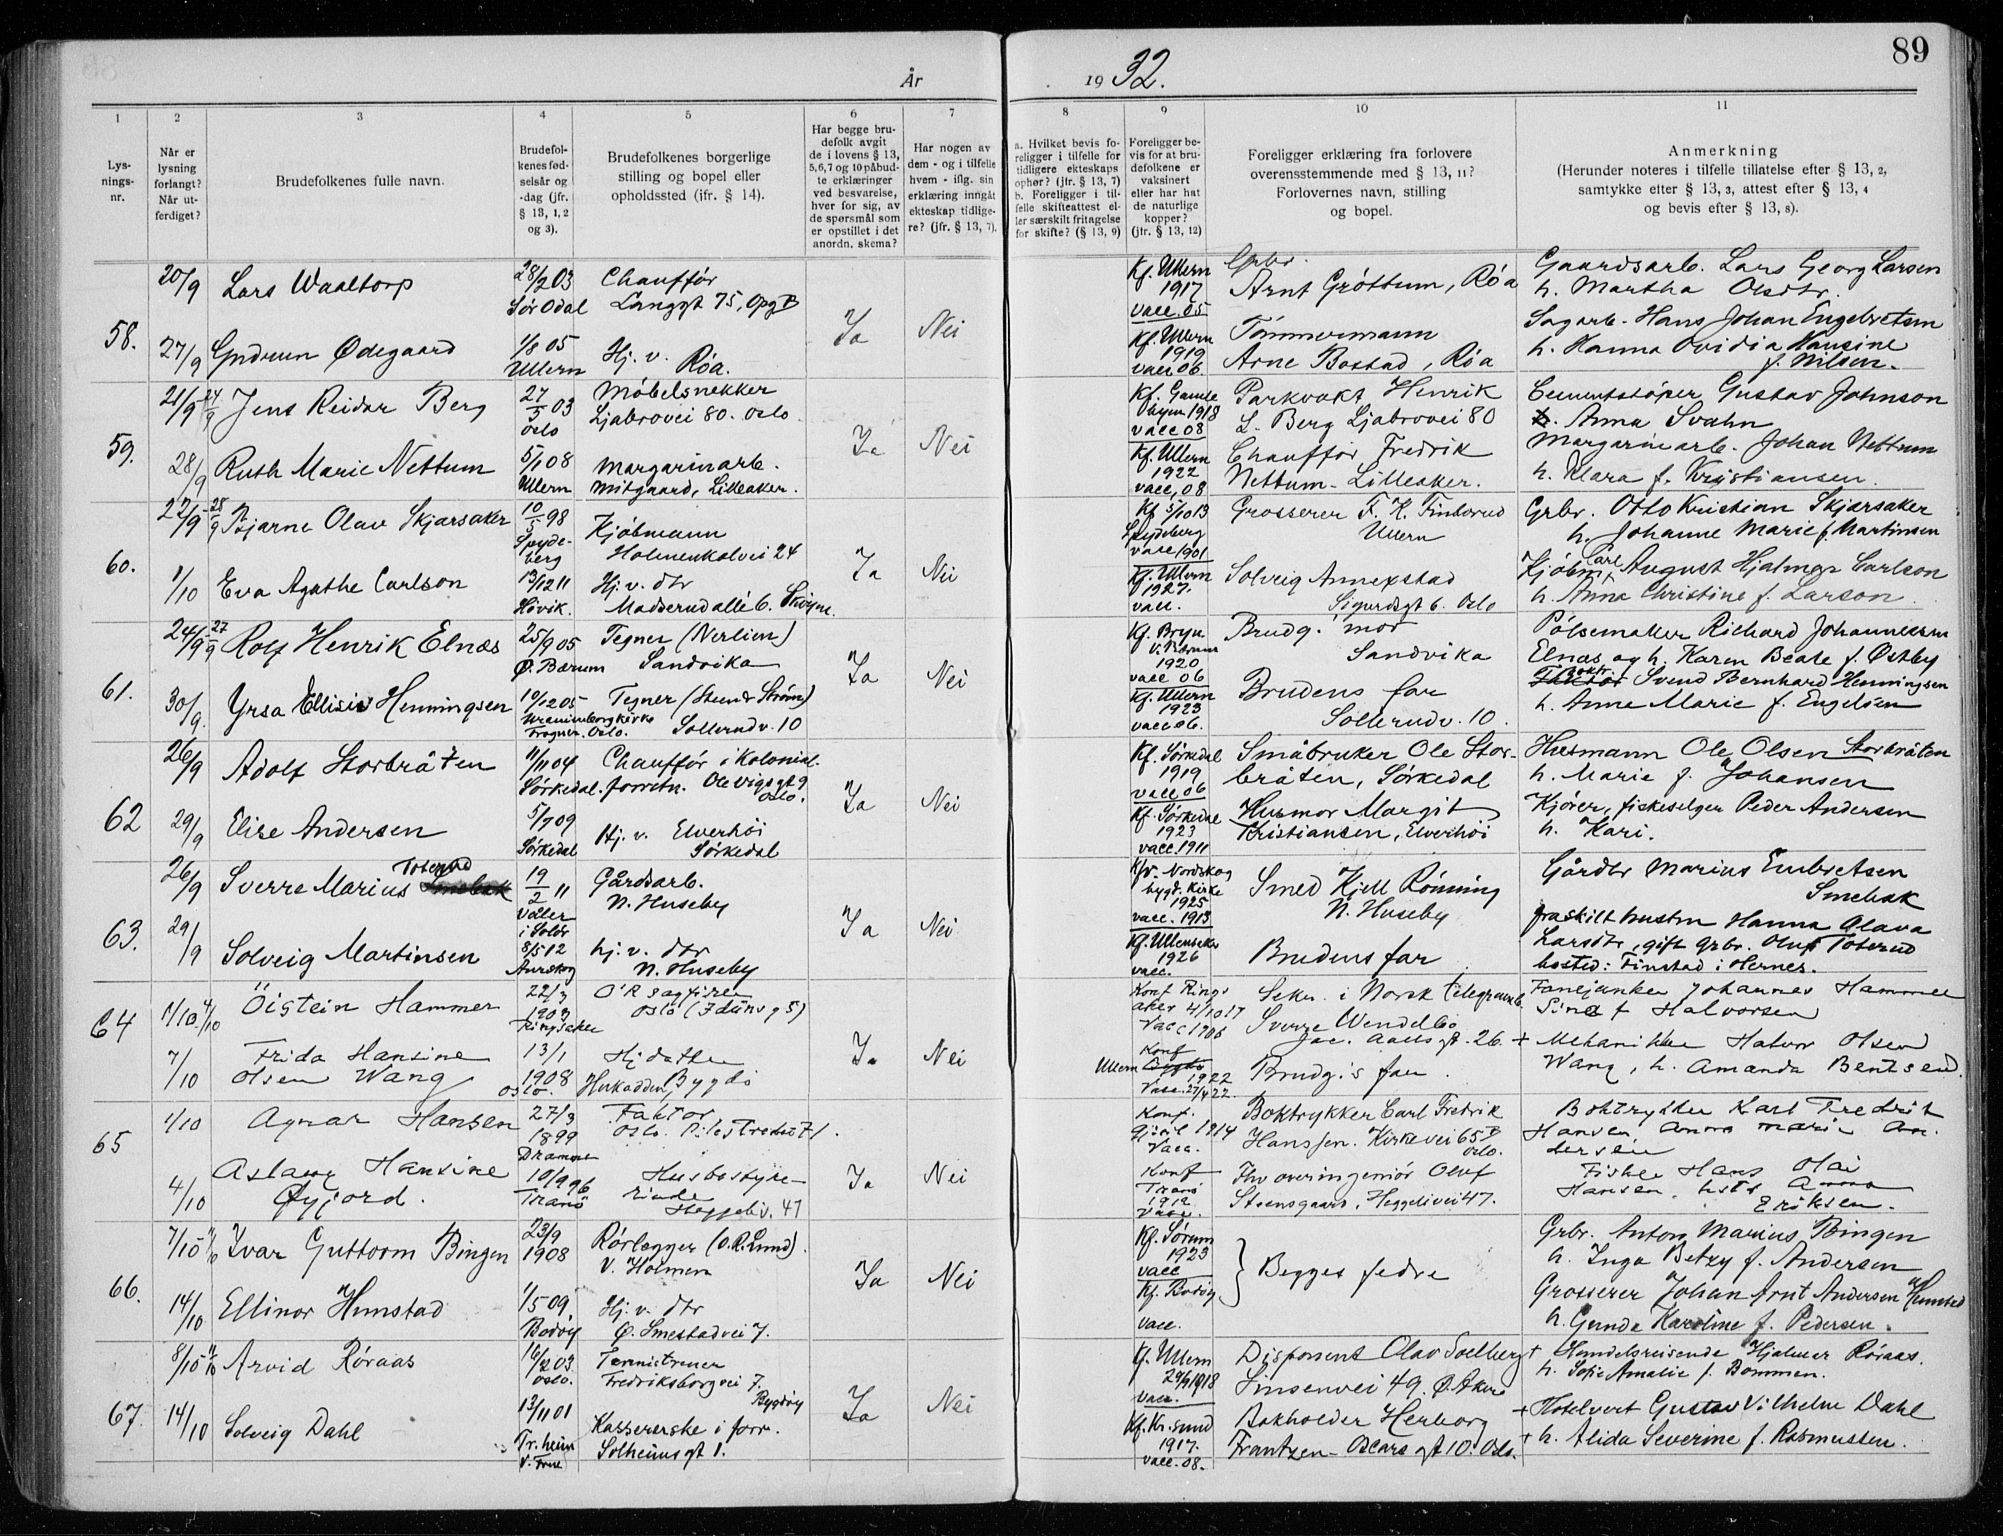 89
År
19 32.
1
2
3
4
5
6
7
8
9
10
11
Lys-
nings-
nr.
Når er
lysning
forlangt?
Når ut-
ferdiget?
Brudefolkenes fulle navn.
Brudefol-
kenes fød-
selsår og
-dag (jfr.
§ 13, 1, 2
og 3).
Brudefolkenes borgerlige
stilling og bopel eller
opholdssted (jfr. § 14).
Har begge bru-
defolk avgit
de i lovens § 13,
5, 6, 7 og 10 påbud-
te erklæringer
ved besvarelse,
hver for sig, av
de spørsmål som
er opstillet i det
anordn. skema?
Har nogen av
dem - og i tilfelle
hvem - iflg. sin
erklæring inngåt
ekteskap tidlige-
re? (jfr. § 13, 7).
a. Hvilket bevis fo-
religger i tilfelle for
tidligere ekteskaps
ophør? (jfr. § 13, 7)
b. Foreligger i til-
felle skifteattest el-
ler særskilt fritagelse
for skifte? (§ 13, 9)
Foreligger be-
vis for at bru-
defolkene er
vaksinert
eller har hat
de naturlige
kopper?
(jfr. § 13, 12)
Foreligger erklæring fra forlovere
overensstemmende med § 13, 11?
Forlovernes navn, stilling
og bopel.
Anmerkning
(Herunder noteres i tilfelle tillatelse efter § 13, 2,
samtykke efter § 13, 3, attest efter § 13, 4
og bevis efter § 13, 8).
58.
20/9 Lars Waaltorp 28/2 03 Sør Odal
Chauffør
Langgt 75, Opg B
Ja Nei
Kf. Ullern
1917
vacc. 05
Grbr.
Arnt Grøttum, Røa
Gaardsarb. Lars Georg Larsen
h. Martha Olsdtr.
27/9 Gudrun Ødegaard 1/8 05 Ullern
Hj. v. Røa.
Kf. Ullern
1919
vacc 06.
Tømmermann
Arne Bostad, Røa
Sagarb. Hans Johan Engebretsen
h. Hanna Ovidia Hansine
f. Nilsen.
59.
21/9 24/9 Jens Reidar Berg 27/5 03 Oslo
Møbelsnekker
Ljabrovei 80. Oslo
Ja Nei
Kf. Gamle
1918
vacc 08
Parkvakt Henrik
L. Berg Ljabrovei 80
Cementstøper Gustav Johnson
h. Anna Svahn
28/9 Ruth Marie Nettum 5/1 08 Ullern
Margarinarb.
Mitgaard, Lilleaker.
Kf. Ullern
1922
vacc. 08
Chauffør Fredrik
Nettum - Lilleaker.
Margarinearb. Johan Nettum
h. Klara f. Kristiansen.
60.
27/9 28/9 Bjarne Olav Skjærsaker 10/5 98 Spyde-
berg
Kjøbmann
Holmenkolvei 24
Ja Nei
Kf 5/10 13
Spydeberg
vacc 1901
Grosserer F. H. Finborud
Ullern
Grbr. Otto Kristian Skjærsaker
h. Johanne Marie f. Martinsen
1/10 Eva Agathe Carlson 13/12 11 Høvik.
Hj. v. dtr
Madserud allé 6. Skøyen.
Kf. Ullern
1927.
vacc.
Solveig Annexstad
Sigurdsgt 6. Oslo
Kjøbm. Carl August Hjalmar Carlson
h. Anna Christine f. Larson
61.
24/9 27/9 Rolf Henrik Elnæs 25/9 05 Ø. Bærum
Tegner (Nerlien)
Sandvika
Ja Nei
Kf. Bryn
1920
vacc 06
Brudg. mor
Sandvika
Pølsemaker Richard Johannessen
Elnæs og h. Karen Beate f. Østby
30/9. Yrsa Ellisiv Henningsen 10/12 05
Uranienborg kirke
Frogner. Oslo.
Tegner (Steen & Strøm)
Sollerudv. 10
Kf. Ullern
1923
vacc 06.
Brudens far
Sollerudv. 10.
Svend Bernhard Henningsen
h. Anne Marie f. Engelsen
62
26/9 Adolf Storbråten 11/11 04 Sørkedal.
Chauffør i Kolonial-
forretn. Ole Vigsgt 9
Oslo.
Ja Nei
Kf. Sørkedal
1919
vacc 06
Småbruker Ole Stor-
bråten, Sørkedal
Husmann Ole Olsen Storbråten
h. Marie f. Johansen
29/9 Elise Andersen 5/7 09 Sørkedal
Hj. v. Elverhøi
Sørkedal
Kf. Sørkedal
1923
vacc. 1911
Husmor Margit
Kristiansen, Elverhøi
Kjører, fiskeselger Peder Andersen
h. Kari.
63.
26/9 Sverre Marius Toterud 19/2 11 Våler
i Solør
Gårdsarb.
N. Huseby
Ja Nei
Kfv. Nordskog
bygd. kirke
1925
vacc. 1913
Smed Kjell Rønning
N. Huseby
Gårdbr Marius Embretsen
Smebak
fraskilt hustru Hanna Olava
Larsdtr, gift grbr. Oluf Toterud
bosted: Finstad i Hernes.
29/9 Solveig Martinsen 8/5 12 Aurskog
hj. v. dtr
N. Huseby
Kf. Ullensaker
1926
vacc.
Brudens far
64
1/10 4/10 Öistein Hammer 22/3
1903
Ringsaker
Oslo (Iduns g 5)
Ja Nei
Konf Rings-
aker 4/10 17
Vacc 1906
Sekr. i Norsk telegramb.
Sverre Wendelbo
Jac. Aalls gt. 26.
Fanejunker Johannes Hammer
Sina f Halvorsen
7/10 Frida Hansine
Olsen Wang 13/1
1908
Oslo.
Hj datter
Herkadden, Bygdö
Ullern
Konf
1922
Vacc. 27/4 22.
Brudgs far.
+ Mekaniker Halvor Olsen
Wang, h. Amanda Bentsen.
65
1/10 Agnar Hansen 27/3
1899
Drammen
Faktor
Oslo. Pilestredet 71.
Ja Nei
Konf.
1914
Vacc.
Boktrykker Carl Fredrik
Hanssen. Kirkevei 65 B
Oslo.
Boktrykker Karl Fredrik
Hansen, Anna Marie An-
dersen
4/10 Aslaug Hansine
Øyjord. 10/9 96
Tranö
Husbestyre-
rinde
Heggeliv. 47
Konf
Tranö
1912
Vacc.
Fhv overingeniör Oluf
Steensgaard, Heggelivei 47.
Fisker Hans Olai
Hansen, hstr Anna
Eriksen.
66.
7/10 Ivar Guttorm Bingen 23/9
1908
Rørlægger (O. R. Lund).
V. Holmen
Ja Nei
Kf. Sørum
1923
vacc
Begges fedre
Grbr. Anton Marius Bingen
h. Inga Betzy f. Andersen
14/10 Ellinor Humstad 1/5 09. Bodøy
Hj. v. dtr
Ø. Smestadvei 7.
Kf. Bodøy
vacc.
Grosserer Johan Arnt Andersen Humstad
h. Gunda Karoline f. Pedersen.
67.
8/10 11/10 Arvid Røraas 16/2 03. Oslo.
Tennistrener
Fredriksborgvei 7.
Bygdøy
Ja Nei
Kf. Ullern
29/9 1918
vacc.
Disponent Olav Solberg
Linsenvei 49. Ø. Aker
+ Handelsreisende Hjalmar Røraas.
h. Sofie Amalie f. Bommen.
14/10 Solveig Dahl 13/11 01 Tr.heim
V. Frue
Kassererske i forr.
Solheimsgt 1.
Kf. Kr.sund
1917.
vacc. 08.
Bokholder Herborg
Frantzen - Oscars gt 10. Oslo.
+ Hotelvert Gustav Vilhelm Dahl
+ h. Alida Severine f. Rasmussen.